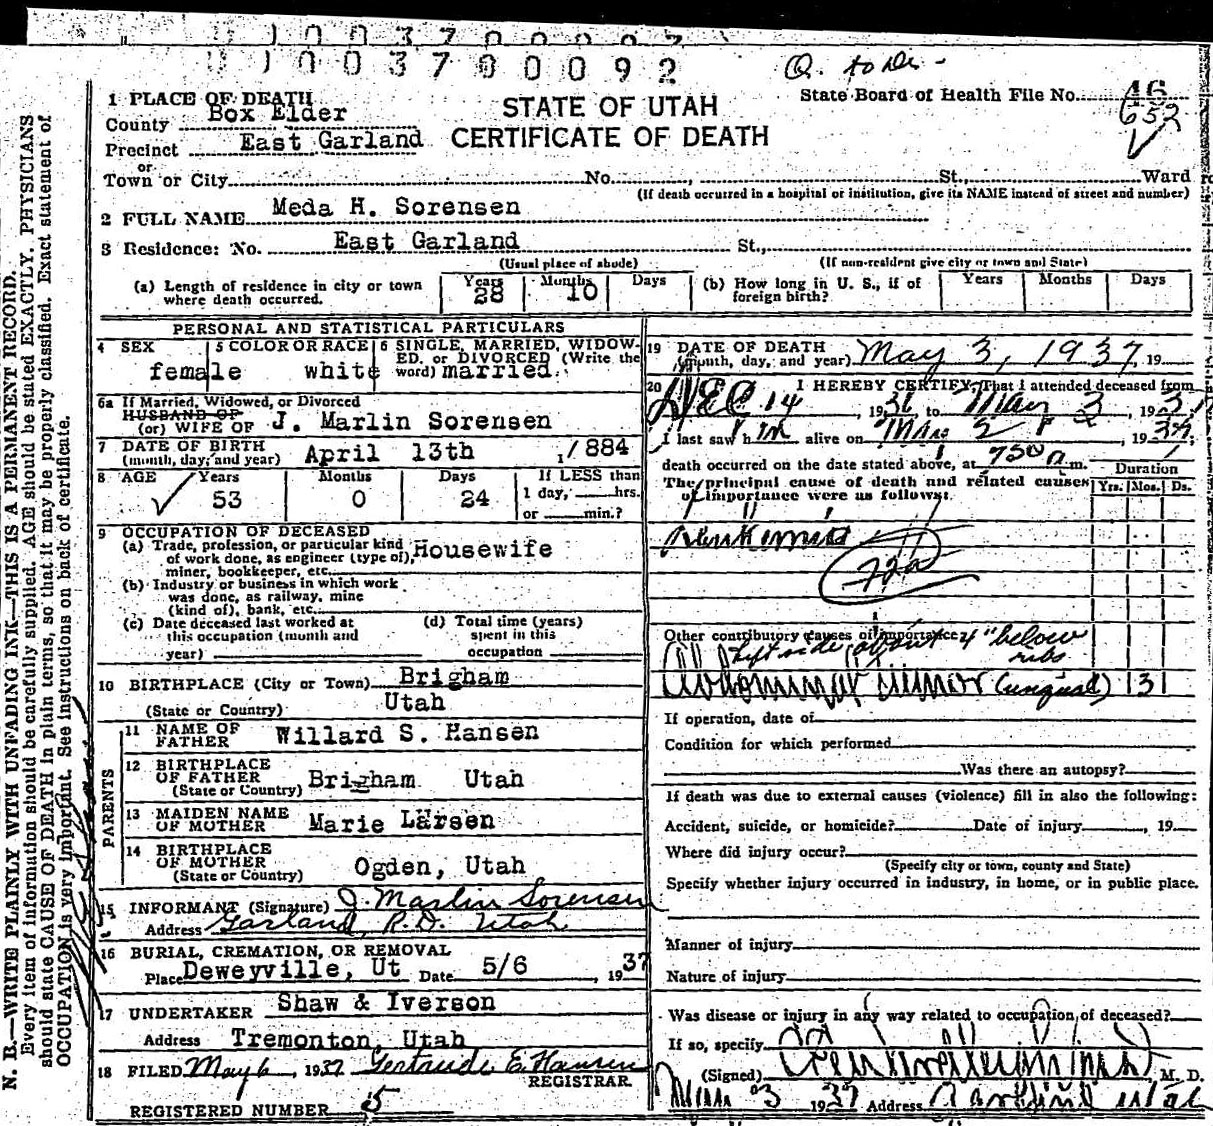 1 0 0 3 7 0 0 0 9 2
State Board of Health File No.
46
652
1 PLACE OF DEATH
STATE OF UTAH
CERTIFICATE OF DEATH
County Box Elder
Precinct East Garland
or
Town or City No. , St., Ward
(If death occurred in a hospital or institution, give its NAME instead of street and number)
2 FULL NAME Meda H. Sorensen
3 Residence: No. East Garland St.,
(Usual place of abode) (If non-resident give city or town and State)
(a) Length of residence in city or town where death occurred. Years 28 Months 10 Days
(b) How long in U. S., if of foreign birth? Years Months Days
PERSONAL AND STATISTICAL PARTICULARS
4 SEX female
5 COLOR OR RACE white
6 SINGLE, MARRIED, WIDOWED, or DIVORCED (Write the word) married.
6a If Married, Widowed, or Divorced
HUSBAND OF
(or) WIFE OF J. Marlin Sorensen
7 DATE OF BIRTH
(month, day, and year) April 13th 1884
8 AGE Years 53 Months 0 Days 24
If LESS than
1 day, hrs.
or min.?
9 OCCUPATION OF DECEASED
(a) Trade, profession, or particular kind of work done, as engineer (type of), miner, bookkeeper, etc. Housewife
(b) Industry or business in which work was done, as railway, mine (kind of), bank, etc.
(c) Date deceased last worked at this occupation (month and year)
(d) Total time (years) spent in this occupation
10 BIRTHPLACE (City or Town) Brigham
(State or Country) Utah
PARENTS
11 NAME OF FATHER Willard S. Hansen
12 BIRTHPLACE OF FATHER
(State or Country) Brigham Utah
13 MAIDEN NAME OF MOTHER Marie Larsen
14 BIRTHPLACE OF MOTHER
(State or Country) Ogden, Utah
15 INFORMANT (Signature) J. Marlin Sorensen
Address Garland, R.D. Utah
16 BURIAL, CREMATION, OR REMOVAL
Place Deweyville, Ut Date 5/6, 1937
17 UNDERTAKER Shaw & Iverson
Address Tremonton, Utah
18 FILED May 6, 1937 Gertrude E. Hansen
REGISTRAR
REGISTERED NUMBER 5
19 DATE OF DEATH
(month, day, and year) May 3, 1937, 19
20 I HEREBY CERTIFY, That I attended deceased from
Dec 14, 1936, to May 3, 1937
I last saw h alive on May 2, 1937
death occurred on the date stated above, at 7 30 a m.
The principal cause of death and related causes of importance were as follows:
Duration
Yrs. Mos. Ds.
Leukemia
72a
Other contributory causes of importance
left side about 4" below ribs
Abdominal tumor (unqual) 3
If operation, date of
Condition for which performed
Was there an autopsy?
If death was due to external causes (violence) fill in also the following:
Accident, suicide, or homicide? Date of injury , 19
Where did injury occur?
(Specify city or town, county and State)
Specify whether injury occurred in industry, in home, or in public place.
Manner of injury
Nature of injury
Was disease or injury in any way related to occupation of deceased?
If so, specify
(Signed) M. D.
May 3 1937 Address Garland Utah
N. B.—WRITE PLAINLY WITH UNFADING INK—THIS IS A PERMANENT RECORD.
Every item of information should be carefully supplied. AGE should be stated EXACTLY. PHYSICIANS
should state CAUSE OF DEATH in plain terms, so that it may be properly classified. Exact statement of
OCCUPATION is very important. See instructions on back of certificate.